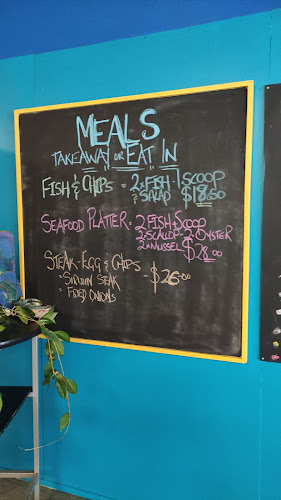 MEALS
TAKEAWAY OR EAT IN
FISH & CHIPS = 2xFISH 1 SCOOP
& SALAD $18.50
SEAFOOD PLATTER = 2 FISH 1 SCOOP
2 SCALLOP - 2 OYSTER
2xMUSSEL $28.00
STEAK - EGG & CHIPS
• SIRLOIN STEAK $26.00
• FRIED ONIONS